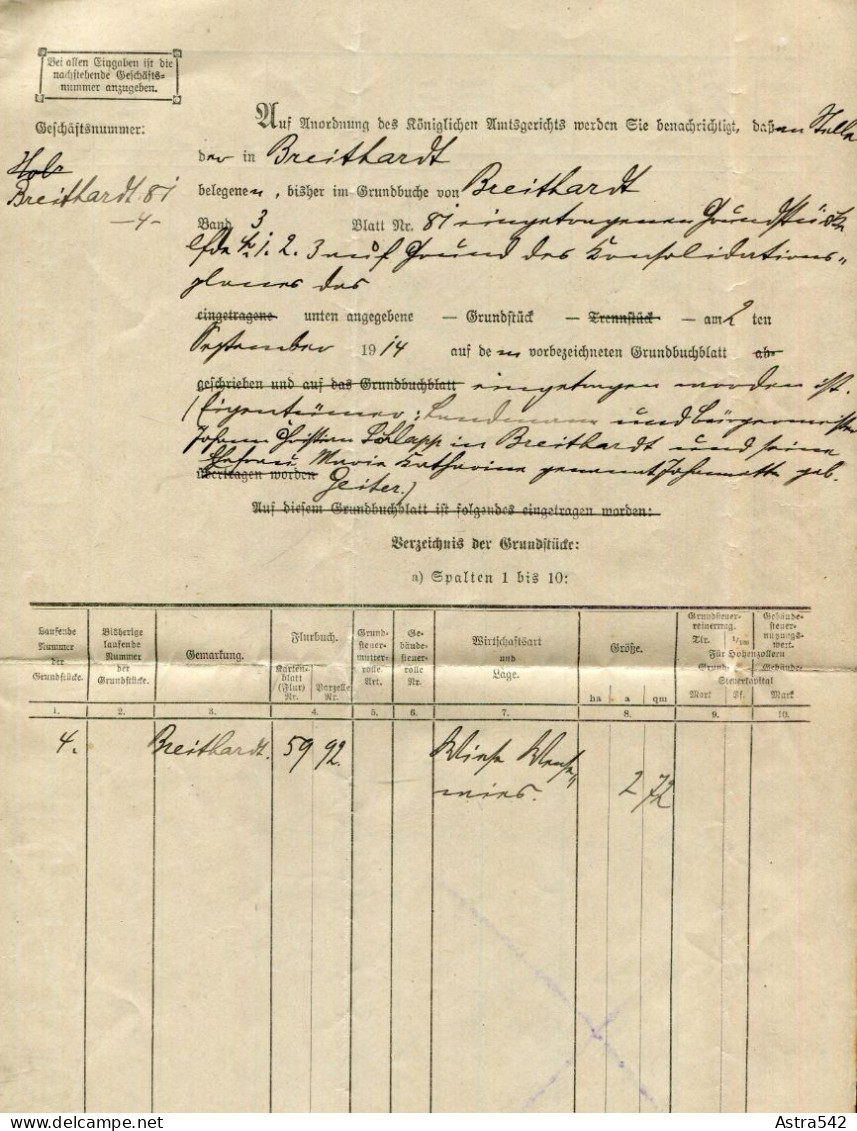 Bei allen Eingaben ist die
nachstehende Geschäfts-
nummer anzugeben.
Geschäftsnummer:
Breithardt 81
-4-
Auf Anordnung des Königlichen Amtsgerichts werden Sie benachrichtigt, daß an Stelle
der in Breithardt
belegenen, bisher im Grundbuche von Breithardt
Band 3 Blatt Nr. 81 eingetragenen Grundstücke
lfde № 1. 2. 3 auf Grund des Konsolidations-
planes das
eingetragene unten angegebene — Grundstück — Trennstück — am 2 ten
September 1914 auf dem vorbezeichneten Grundbuchblatt ab-
geschrieben und auf das Grundbuchblatt eingetragen worden ist.
(Eigentümer: Landmann und Bürgermeister
Johann Christian Schlapp in Breithardt und seine
Ehefrau Maria Katharina genannt Johannette geb.
übertragen worden Geiter.)
Auf diesem Grundbuchblatt ist folgendes eingetragen worden:
Verzeichnis der Grundstücke:
a) Spalten 1 bis 10:
Laufende Nummer der Grundstücke.
Bisherige laufende Nummer der Grundstücke.
Gemarkung.
Flurbuch.
Karten-blatt (Flur) Nr.
Parzelle Nr.
Grund-steuer-mutter-rolle. Art.
Ge-bäude-steuer-rolle Nr.
Wirtschaftsart und Lage.
Größe.
ha a qm
Grundsteuer-reinertrag. Tlr. 1/100
Gebäude-steuer-nutzungs-wert.
Für Hohenzollern
Grund- Gebäude-
Steuerkapital
Mark Pf. Mark
1. 2. 3. 4. 5. 6. 7. 8. 9. 10.
4. Breithardt. 59 92. Wiese 2 72
Astra542